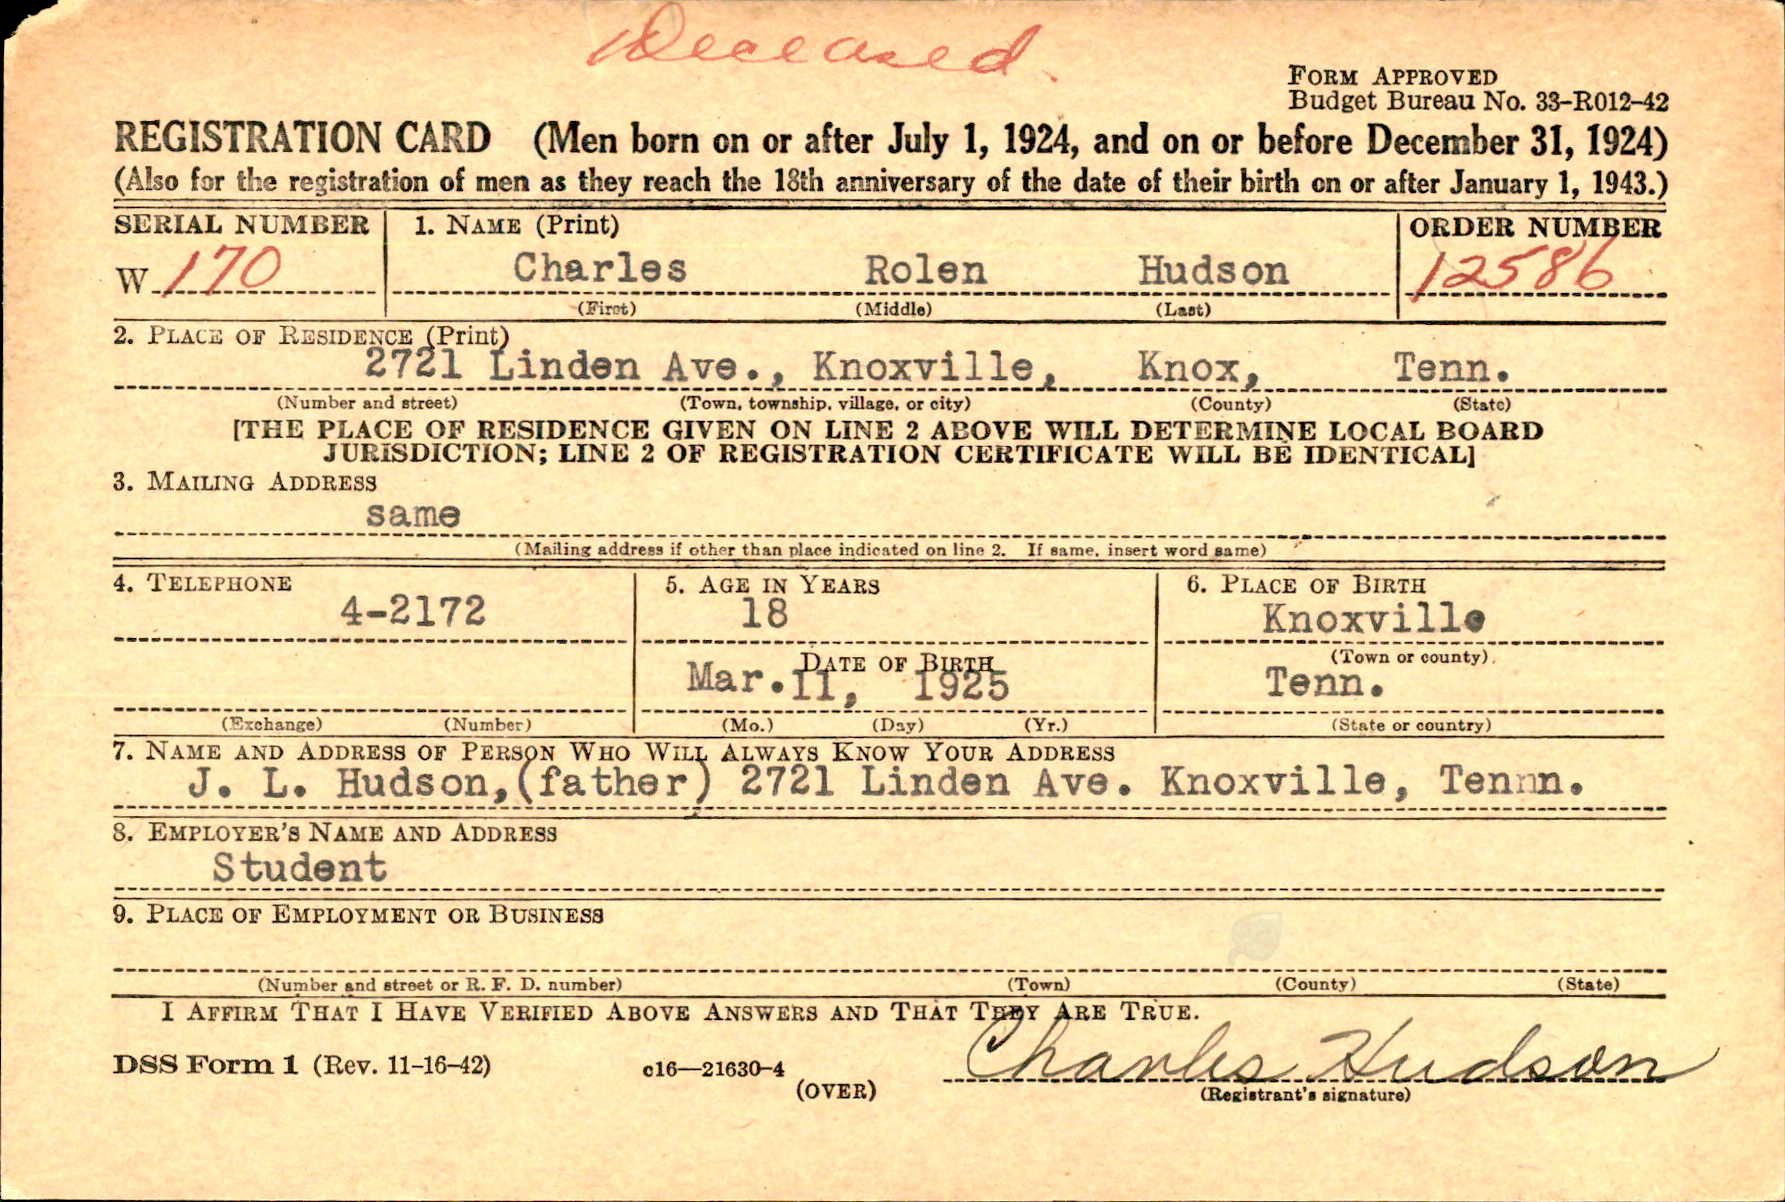 Deceased.
FORM APPROVED
Budget Bureau No. 33-R012-42
REGISTRATION CARD (Men born on or after July 1, 1924, and on or before December 31, 1924)
(Also for the registration of men as they reach the 18th anniversary of the date of their birth on or after January 1, 1943.)
SERIAL NUMBER 1. NAME (Print) ORDER NUMBER
W 170 Charles Rolen Hudson 12586
(First) (Middle) (Last)
2. PLACE OF RESIDENCE (Print)
2721 Linden Ave., Knoxville, Knox, Tenn.
(Number and street) (Town, township, village, or city) (County) (State)
[THE PLACE OF RESIDENCE GIVEN ON LINE 2 ABOVE WILL DETERMINE LOCAL BOARD
JURISDICTION; LINE 2 OF REGISTRATION CERTIFICATE WILL BE IDENTICAL]
3. MAILING ADDRESS
same
(Mailing address if other than place indicated on line 2. If same, insert word same)
4. TELEPHONE 5. AGE IN YEARS 6. PLACE OF BIRTH
4-2172 18 Knoxville
DATE OF BIRTH (Town or county)
Mar. 11, 1925 Tenn.
(Exchange) (Number) (Mo.) (Day) (Yr.) (State or country)
7. NAME AND ADDRESS OF PERSON WHO WILL ALWAYS KNOW YOUR ADDRESS
J. L. Hudson,(father) 2721 Linden Ave. Knoxville, Tennn.
8. EMPLOYER'S NAME AND ADDRESS
Student
9. PLACE OF EMPLOYMENT OR BUSINESS
(Number and street or R. F. D. number) (Town) (County) (State)
I AFFIRM THAT I HAVE VERIFIED ABOVE ANSWERS AND THAT THEY ARE TRUE.
DSS Form 1 (Rev. 11-16-42) c16—21630-4 Charles Hudson
(OVER) (Registrant's signature)